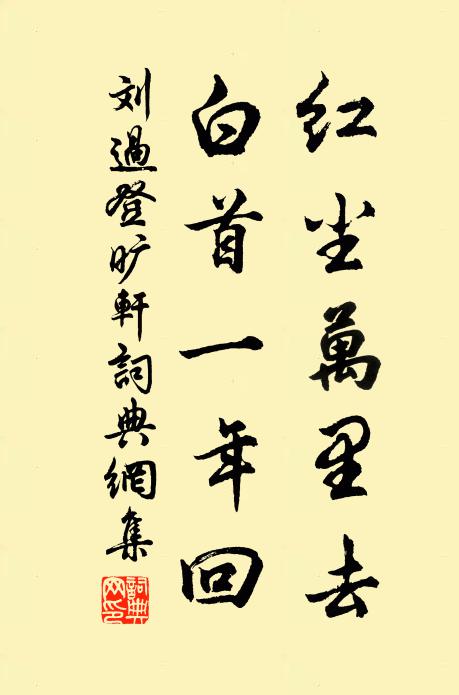 红尘萬里去
白首一年回
刘過登旷軒詞典網集
詞典网印